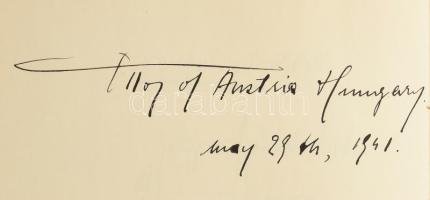 of Austria Hungary.
may 29th, 1941.
darabanth